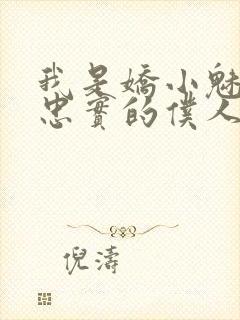 我是嬌小魅
忠實的僕人
倪濤